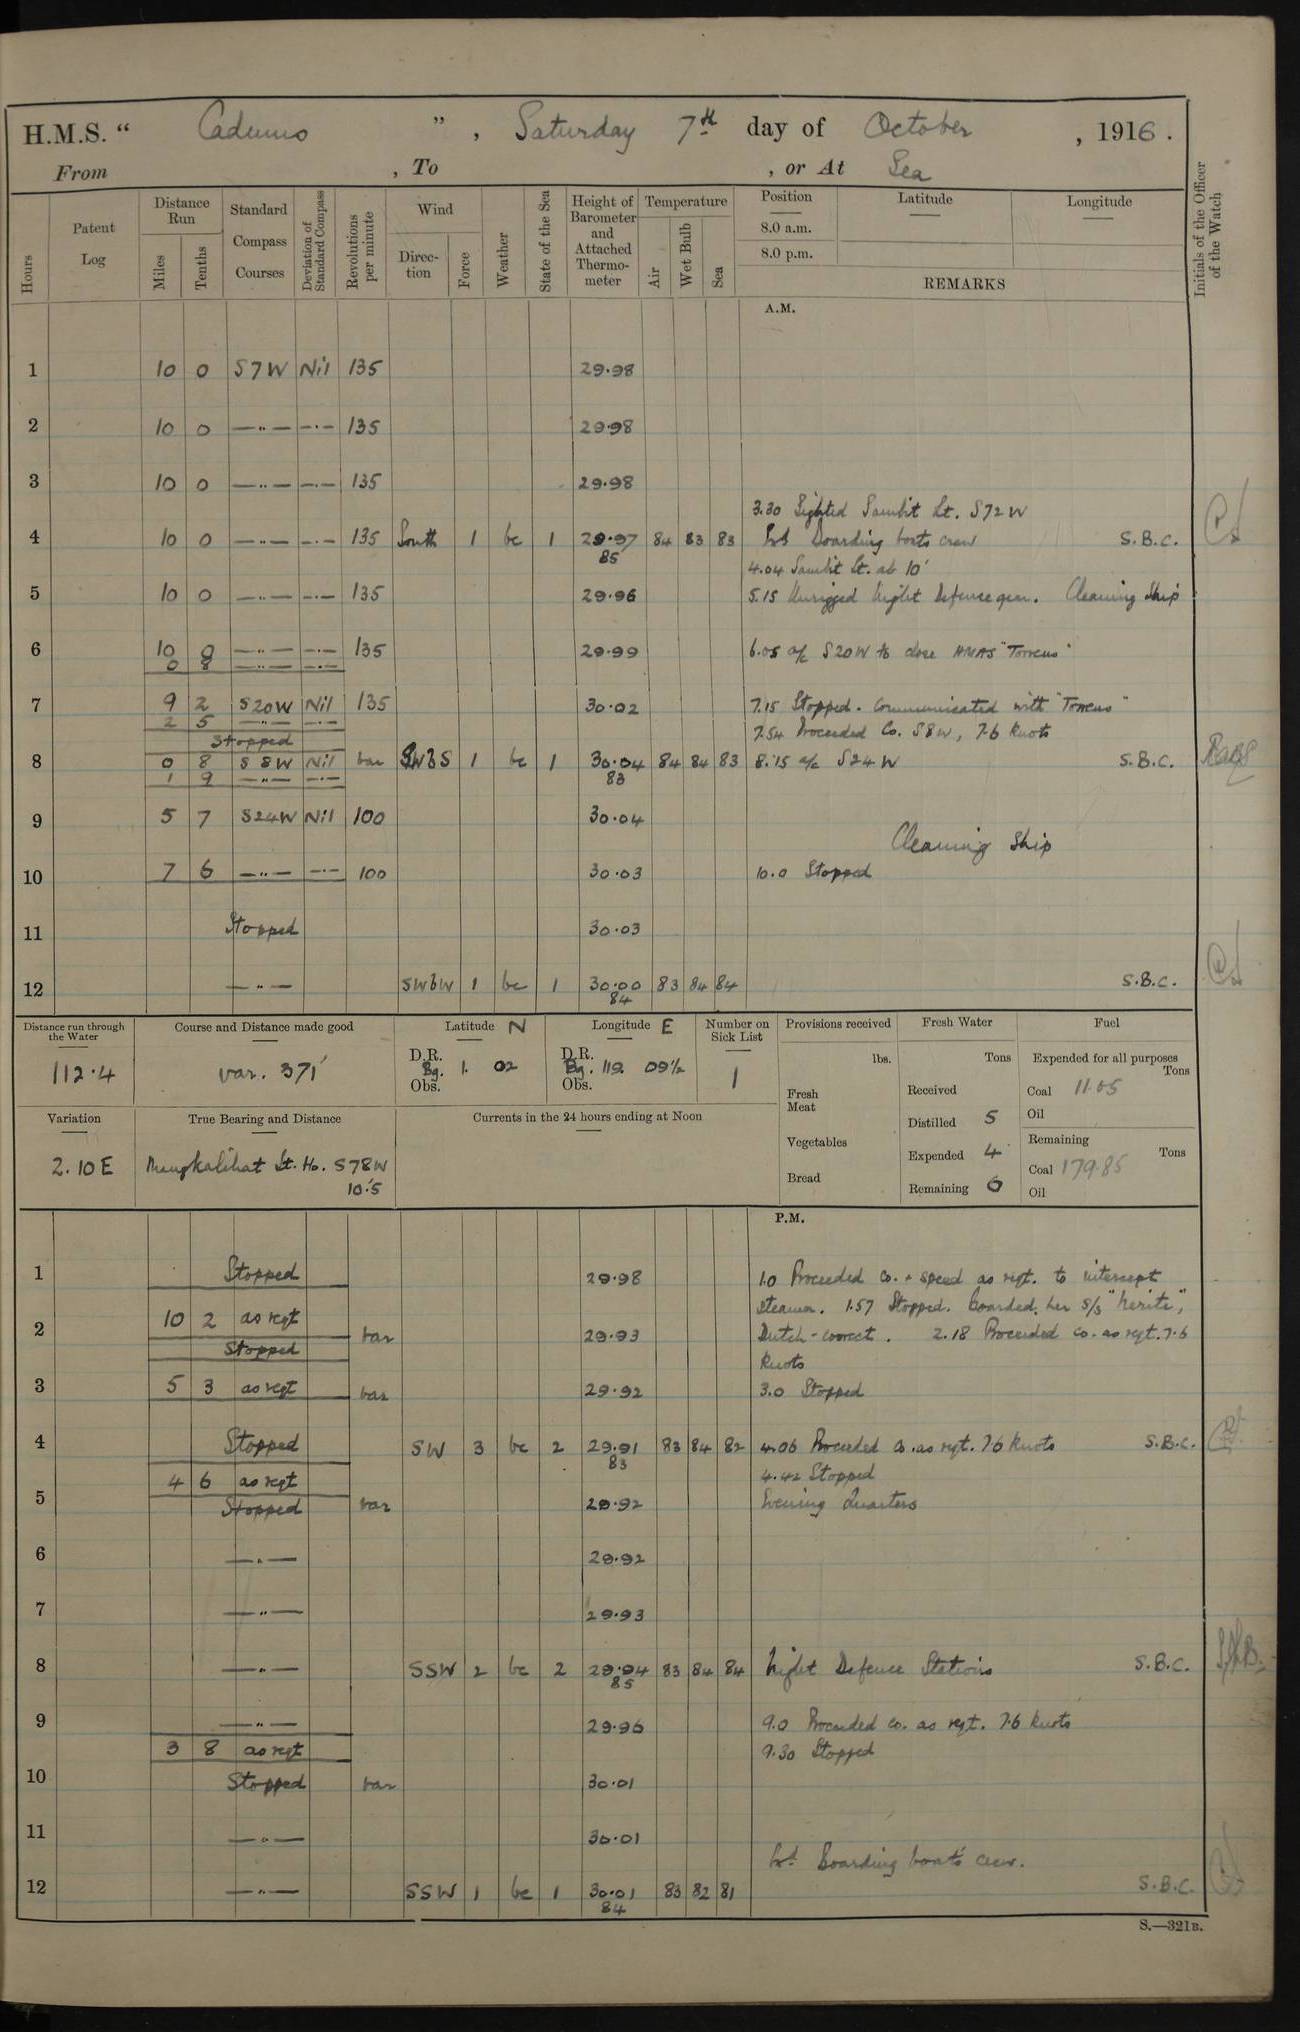 H.M.S. “ Cadmus ” , Saturday 7th day of October , 1916.
From , To , or At Sea
Hours
Patent Log
Distance Run
Miles
Tenths
Standard Compass Courses
Deviation of Standard Compass
Revolutions per minute
Wind
Direction
Force
Weather
State of the Sea
Height of Barometer and Attached Thermometer
Temperature
Air
Wet Bulb
Sea
Position
8.0 a.m.
8.0 p.m.
Latitude
Longitude
REMARKS
Initials of the Officer of the Watch
A.M.
1 10 0 S7W Nil 135 29.98
2 10 0 —"— —"— 135 29.98
3 10 0 —"— —"— 135 29.98
3.30 Sighted Sambit Lt. S72W
4 10 0 —"— —"— 135 South 1 bc 1 29.97 84 83 83 Boarding boats crew S.B.C.
85
4.04 Sambit Lt. ab 10'
5 10 0 —"— —"— 135 29.96 5.15 Unrigged Night Defence gear. Cleaning Ship
6 10 0 —"— —"— 135 29.99 6.05 a/c S20W to close HMAS "Torrens"
0 8 —"— —"—
7 9 2 S20W Nil 135 30.02 7.15 Stopped. Communicated with "Torrens"
2 5 —"— —"—
Stopped 7.54 Proceeded Co. S8W, 7.6 knots
8 0 8 S8W Nil var SWbS 1 bc 1 30.04 84 84 83 8.15 a/c S24W S.B.C.
1 9 —"— —"— 83
9 5 7 S24W Nil 100 30.04
Cleaning Ship
10 7 6 —"— —"— 100 30.03 10.0 Stopped
11 Stopped 30.03
12 —"— SWbW 1 bc 1 30.00 83 84 84 S.B.C.
84
Distance run through the Water
112.4
Course and Distance made good
var. 371'
Latitude N
D.R.
Bg. 1. 02
Obs.
Longitude E
D.R.
Bg. 119. 09½
Obs.
Number on Sick List
1
Provisions received
lbs.
Fresh Meat
Vegetables
Bread
Fresh Water
Tons
Received
Distilled 5
Expended 4
Remaining 6
Fuel
Expended for all purposes
Tons
Coal 11.05
Oil
Remaining
Tons
Coal 179.85
Oil
Variation
2.10E
True Bearing and Distance
Mangkalihat Lt. Ho. S78W
10.'5
Currents in the 24 hours ending at Noon
P.M.
1 Stopped 29.98 1.0 Proceeded Co. + speed as reqt. to intercept
steamer. 1.57 Stopped. Boarded her S/S
2 10 2 as reqt var 29.93 Dutch - correct. 2.18 Proceeded co. as reqt. 7.6
Stopped
knots
3 5 3 as reqt var 29.92 3.0 Stopped
4 Stopped SW 3 bc 2 29.91 83 84 82 4.06 Proceeded co. as reqt. 7.6 knots S.B.C.
83
4 6 as reqt 4.42 Stopped
5 Stopped var 29.92 Evening Quarters
6 —"— 29.92
7 —"— 29.93
8 —"— SSW 2 bc 2 29.94 83 84 84 Night Defence Stations S.B.C.
85
9 —"— 29.96 9.0 Proceeded co. as reqt. 7.6 knots
3 8 as reqt 9.30 Stopped
10 Stopped var 30.01
11 —"— 30.01
Boarding boats crew.
12 —"— SSW 1 bc 1 30.01 83 82 81 S.B.C.
84
S.—321B.